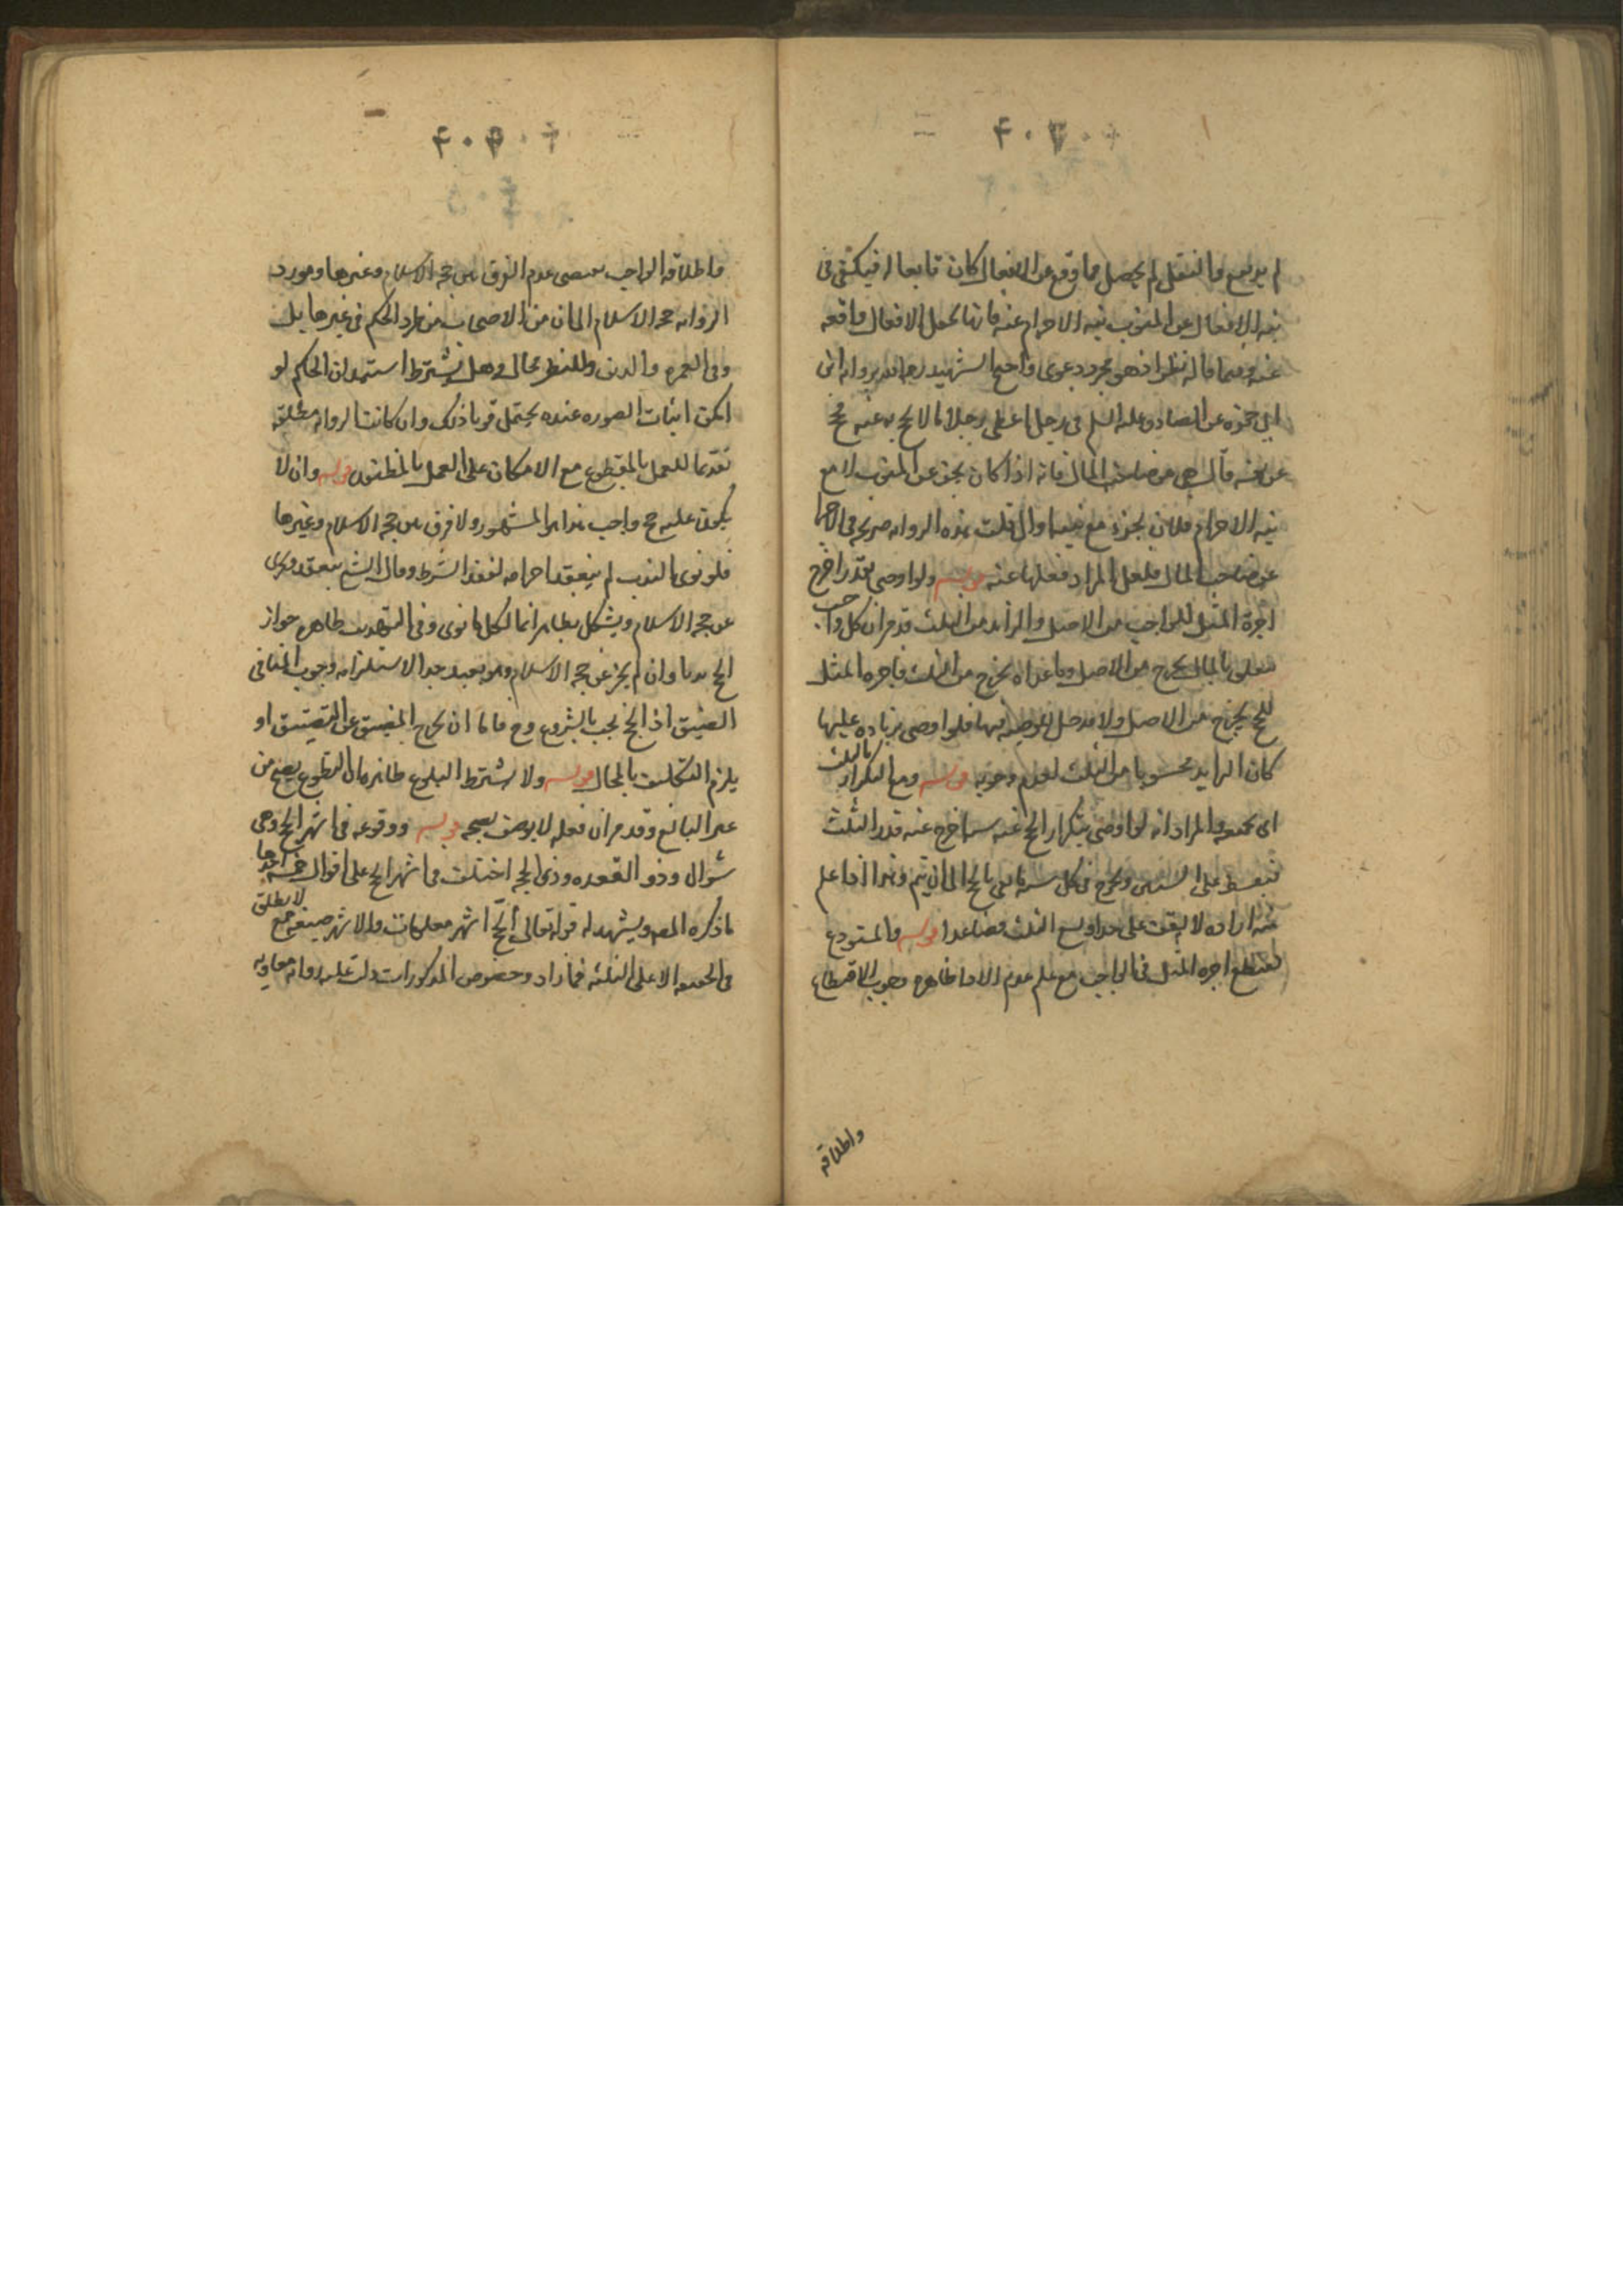 لم يرتفع والنقل لم يحصل فما وقع من الافعال كان تابعا له فيكتفى فى
نيه الافعال عن المنوب نيه الاحرام عنه فانها تجعل الافعال واقعه
عنه وفيما قاله نظر اذ هو مجرد دعوى واحتج الشهيد رحمه الله بروايه ابى
ابى حمزه عن الصادق عليه السلم فى رجل اعطى رجلا مالا يحج به عنه فحج
عن نفسه قال هى عن صاحب المال فانه اذا كان يجزى عن المنوب لا مع
نيه الاحرام فلان يجزى مع نيته اولى قلت هذه الروايه صريحه فى الاجزا
عن صاحب المال فلعل المراد فعلها عنه قوله ولو اوصى بقدر اخرج
اجرة المثل للواجب من الاصل والزايد من الثلث قد مر ان كل واجب
متعلق بالمال يخرج من الاصل وما عداه يخرج من الثلث فاجره المثل
للحج يخرج من الاصل ولا مدخل للوصيه فيها فلو اوصى بزياده عليها
كان الزايد محسوبا من الثلث لعدم وجوبه قوله ومع التكرار بالثلث
اى المراد انه لو اوصى بتكرار الحج عنه اخرج عنه قدر الثلث
على السنين ويخرج فى كل سنه بالحج الى ان يتم وهذا اذا علم
منه اراده لا يقف على حد او يسع الثلث فصاعدا قوله والمستودع
يقتطع اجره المثل فى الواجب مع علم عدم الادا ظاهره وجوب الاقتطاع
واطلاقه
واطلاقه الواجب يقتضى عدم الفرق بين حجه الاسلام وغيرها ومورد
الروايه حجه الاسلام الا ان من الاصحاب من طرد الحكم فى غيرها بل
وفى العمره والدين وللنظر مجال وهل يشترط استيذان الحاكم لو
امكن اثبات الصوره عنده يحتمل قويا ذلك وان كانت الروايه مطلقه
تقديما للعمل بالمقطوع مع الامكان على العمل بالمظنون قوله وان لا
يكون عليه حج واجب هذا هو المشهور ولا فرق بين حجه الاسلام وغيرها
فلو نوى بالندب لم ينعقد احرامه لفقد الشرط وقال الشيخ ينعقد ويجزى
عن حجه الاسلام ويشكل بظاهر انما لكل ما نوى وفى التهذيب ظاهره جواز
الحج ندبا وان لم يجز عن حجه الاسلام وهو بعيد جدا لاستلزامه وجوب المنافى
المضيق اذ الحج يجب بالشروع وح فاما ان يخرج المضيق عن التضييق او
يلزم التكليف بالمحال قوله ولا يشترط البلوغ ظاهره ان التطوع يصح من
غير البالغ وقد مر ان فعله لا يوصف بصحه قوله ووقوعه فى اشهر الحج وهى
شوال وذو القعده وذى الحجه اختلف فى اشهر الحج على اقوال خمسه احدها
ما ذكره المصـ ويشهد له قوله تعالى الحج اشهر معلومات والاشهر صيغه جمع لا يطلق
فى الحقيقه الا على الثلثه فما زاد وخصوص المذكورات دلت عليه روايه معاويه